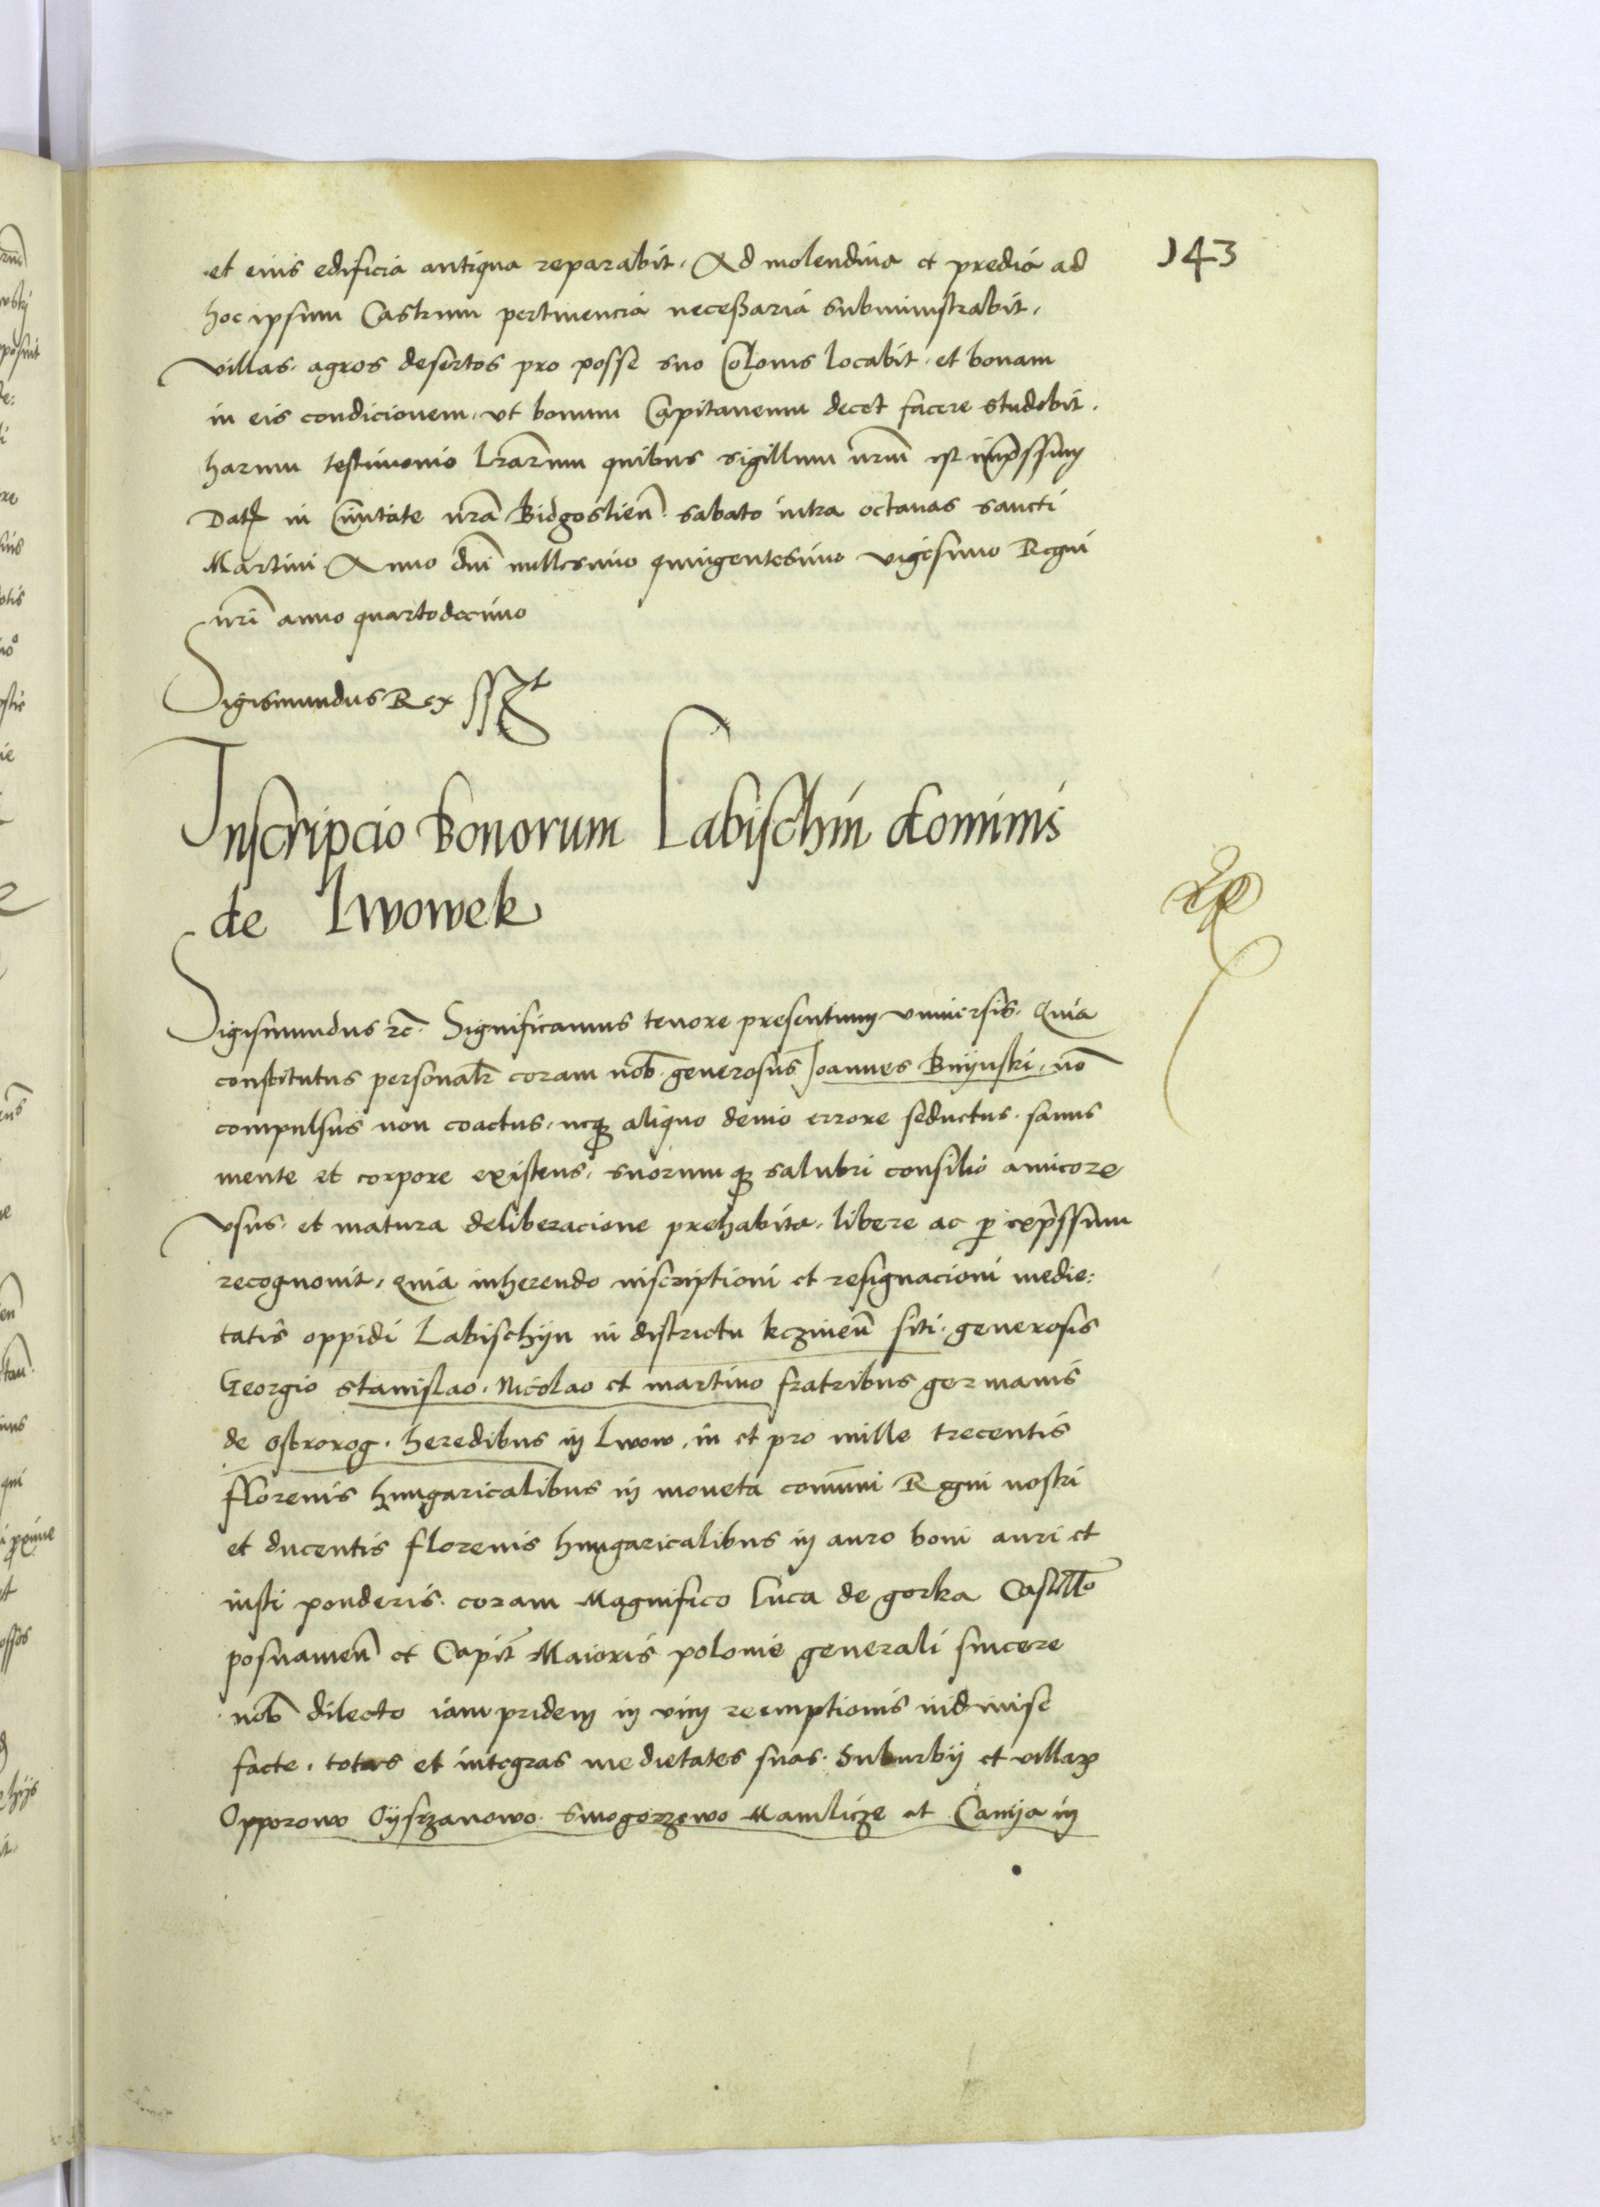 143
et eius edificia antiqua reparabit. Ad molendina et predia ad
hoc ipsum Castrum pertinencia necessaria subministrabit.
villas. agros desertos pro posse suo Colonis locabit. et bonam
in eis condicionem. vt bonum Capitaneum decet facere studebit.
harum testimonio lrarum quibus sigillum nrum est impssum
Dat in Ciuitate nra Bidgostien. sabato intra octauas sancti
Martini Anno dni millesimo quingentesimo vigesimo Regni
nri anno quartodecimo
Sigismundus Rex sst
Inscripcio Bonorum Labischin dominis
de Lwowek
Sigismundus rc. Significamus tenore presentium vniuersis. Quia
constitutus personalr coram nob. generosus Joannes Bnijnski. no
compulsus non coactus. neque aliquo deuio errore seductus. sanus
mente et corpore existens. suorumque salubri consilio amicorum
vsus. et matura deliberacione prehabita. libere ac per expssum
recognouit. Quia inherendo inscriptioni et resignacioni medie:
tatis oppidi Labischyn in districtu kczinen siti. generosis
Georgio stanislao. Nicolao et martino fratribus germanis
de ostrorog. heredibus in Lwow. in et pro mille trecentis
florenis hungaricalibus in moneta comuni Regni nostri
et ducentis florenis hungaricalibus in auro boni auri et
iusti ponderis. coram Magnifico luca de gorka Castello
posnanien et Capit Maioris polonie generali sincere
nob dilecto iam pridem in vim reemptionis indiuise
facte. totas et integras medietates suas. Suburbij et villarum
Opporowo Oijsrzanowo. Smogorzewo Mamlicze et Camija in